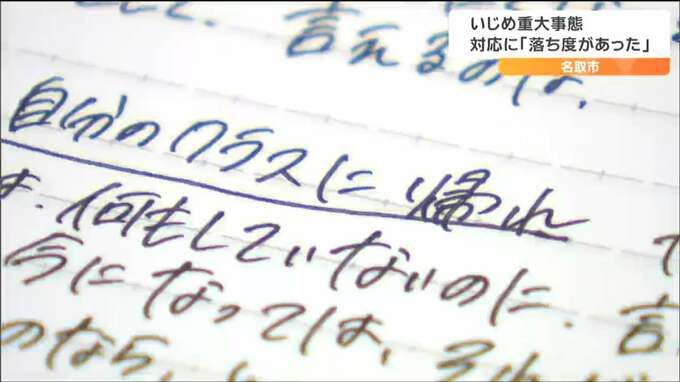 いじめ重大事態
対応に「落ち度があった」
名取市
言えるのは、
自分のクラスに帰れ
す。何もしていないのに、て
今になっては、それ 言
のなら、